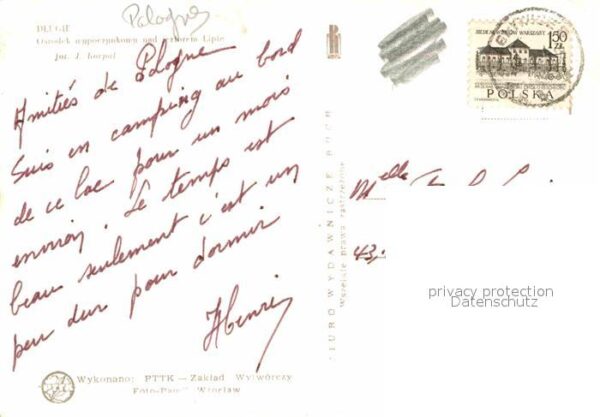 Pologne
DŁUGIE
Ośrodek wypoczynkowy nad jeziorem Lipie
fot. J. Korpal
Amitiés de Pologne
Suis en camping au bord
de ce lac pour un mois
environ. Le temps est
beau seulement c'est un
peu dur pour dormir
Henri
Wykonano: PTTK — Zakład Wytwórczy
Foto-Pam" Wrocław
BIURO WYDAWNICZE RUCH
Wszelkie prawa zastrzeżone
SIEDEM WIEKÓW WARSZAWY
1,50 ZŁ
POLSKA
Melle
43,
privacy protection
Datenschutz